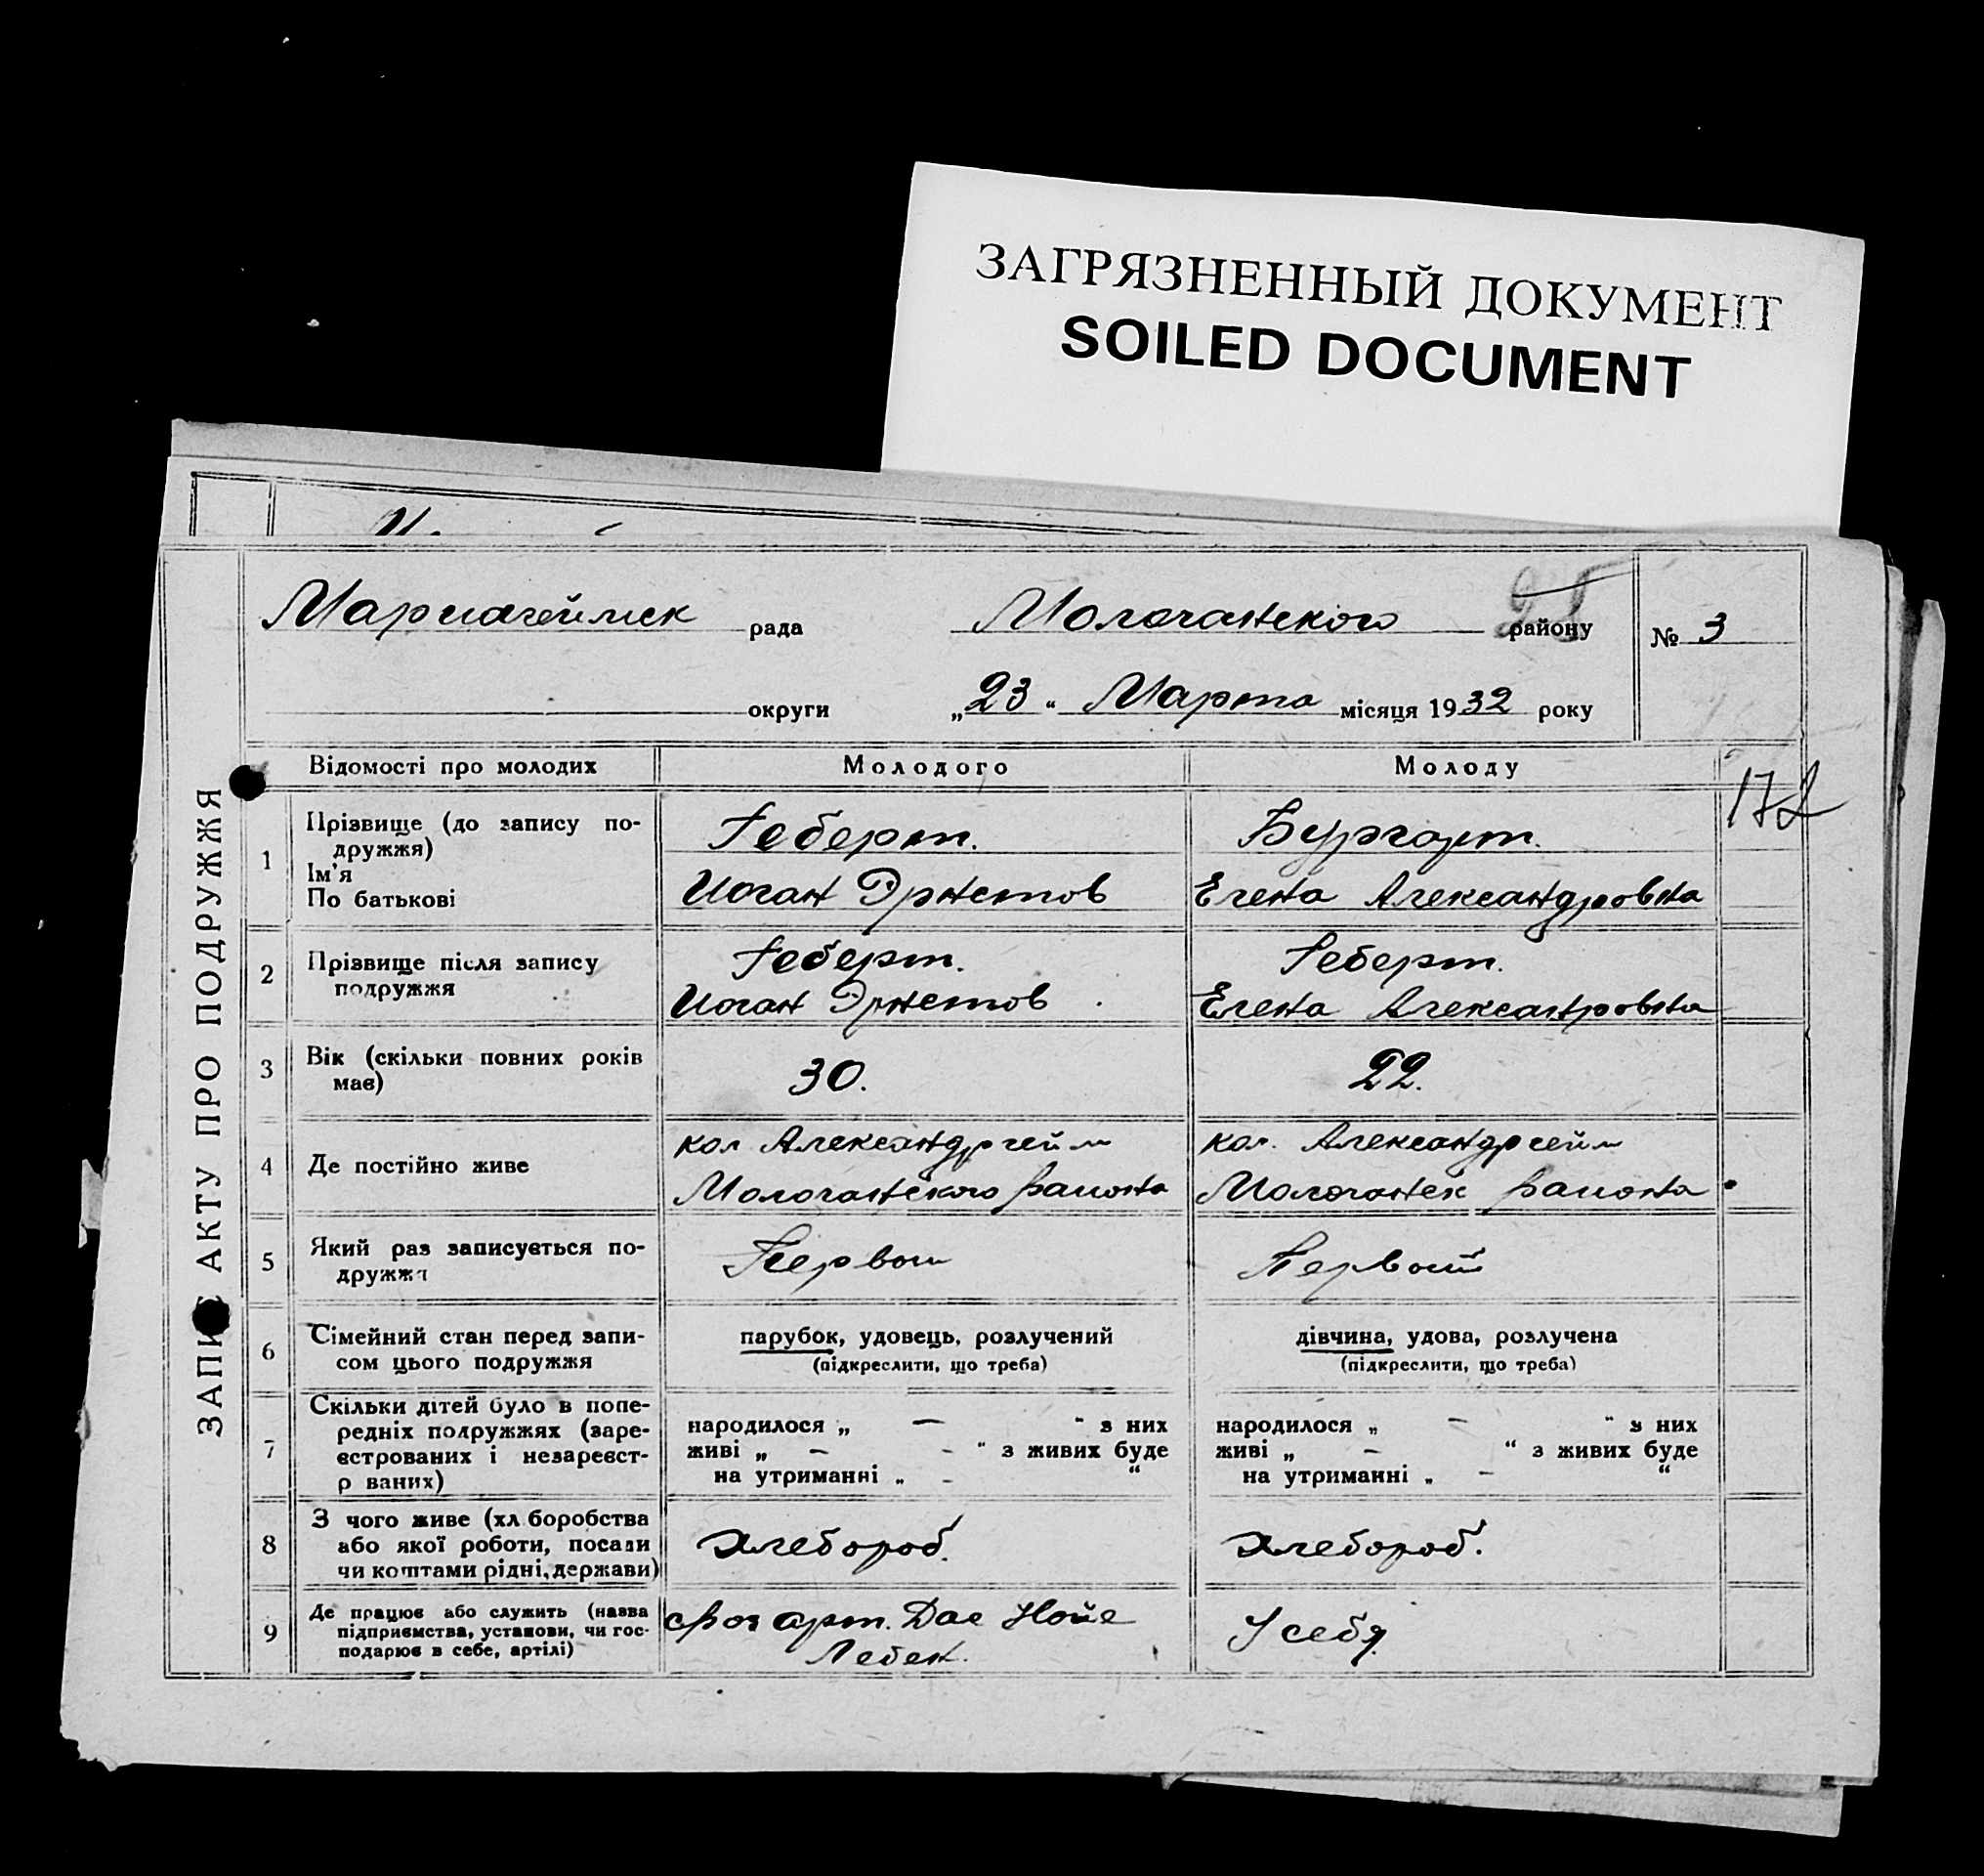 ЗАГРЯЗНЕННЫЙ ДОКУМЕНТ
SOILED DOCUMENT
ЗАПИС АКТУ ПРО ПОДРУЖЖЯ
Мариагеймск рада Молочанского району № 3
25
округи „23“ Марта місяця 1932 року
Відомості про молодих Молодого Молоду
172
1 Прізвище (до запису по-
дружжя)
Ім'я
По батькові
Геберт.
Иоган Эрнстов
Бургарт.
Елена Александровна
2 Прізвище після запису
подружжя
Геберт.
Иоган Эрнстов
Геберт.
Елена Александровна
3 Вік (скільки повних років
має)
30.
22.
4 Де постійно живе
кол Александргейм
Молочанского района
кол. Александргейм
Молочанск района
5 Який раз записується по-
дружжя
Первый
Первый
6 Сімейний стан перед запи-
сом цього подружжя
парубок, удовець, розлучений
(підкреслити, що треба)
дівчина, удова, розлучена
(підкреслити, що треба)
7 Скільки дітей було в попе-
редніх подружжях (заре-
єстрованих і незареєст-
р ваних)
народилося „ — “ з них
живі „ — - “ з живих буде
на утриманні „ - “
народилося „ — “ з них
живі „ — “ з живих буде
на утриманні „ — “
8 З чого живе (хл боробства
або якої роботи, посади
чи коштами рідні, держави)
хлебороб.
хлебороб.
9 Де працює або служить (назва
підприємства, установи, чи гос-
подарює в себе, артілі)
арт. Дас Нойе
Лебен.
У себя.